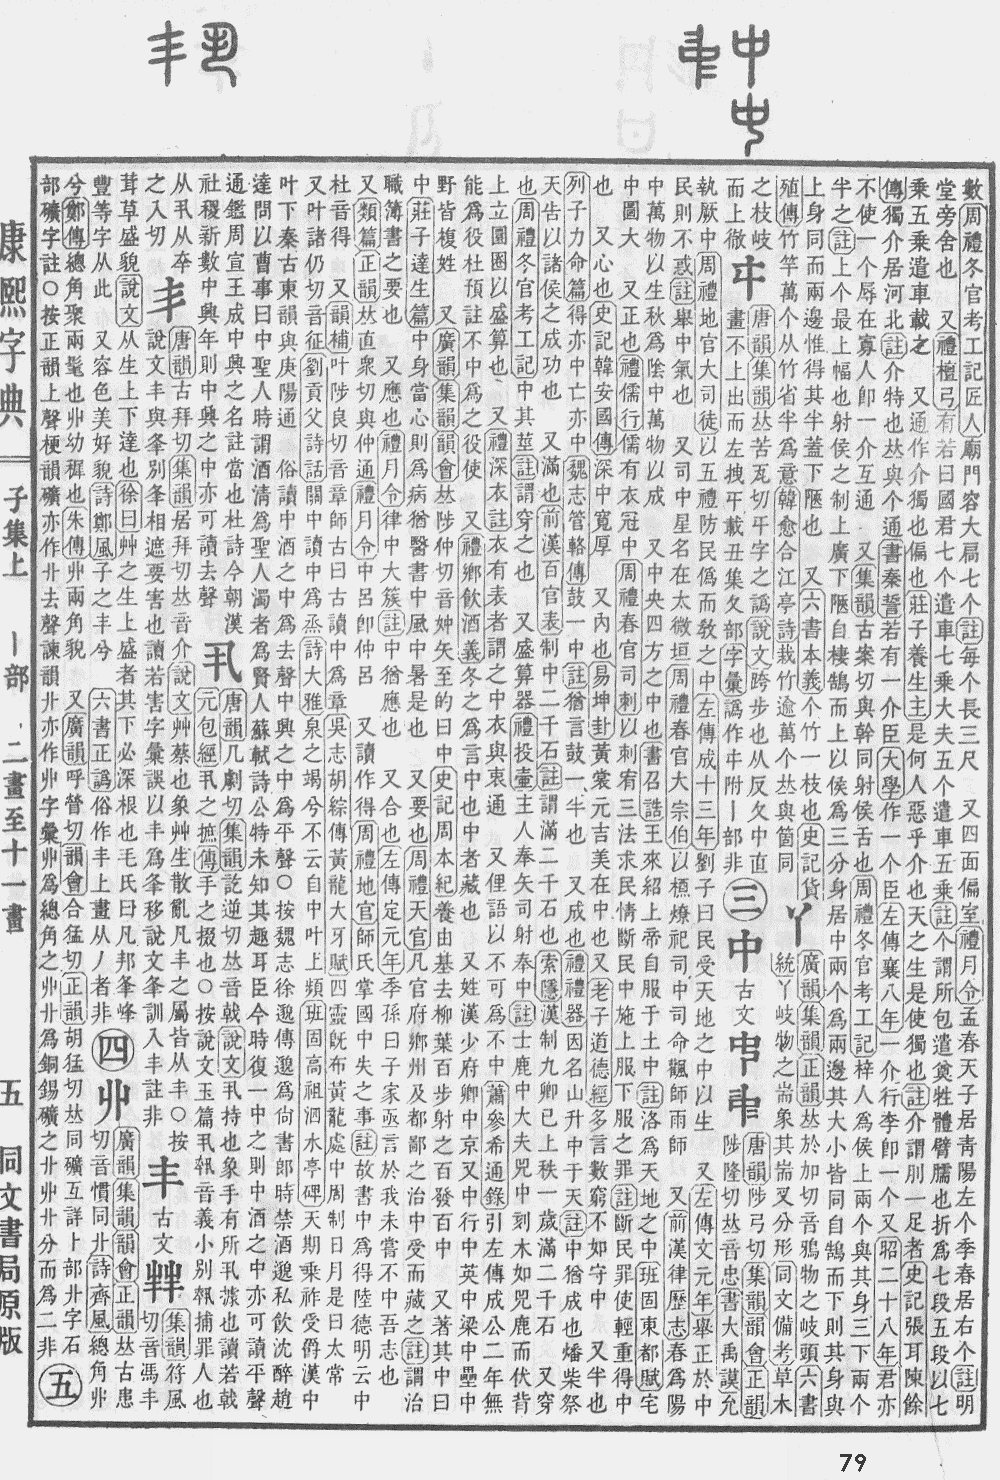 數周禮冬官考工記匠人廟門容大扃七个註每个長三尺 又四面偏室禮月令孟春天子居靑陽左个季春居右个註明
堂旁舍也 又禮檀弓有若曰國君七个遣車七乘大夫五个遣車五乘註个謂所包遣奠牲體臂臑也折爲七段五段以七
乘五乘遣車載之 又通作介獨也偏也莊子養生主是何人惡乎介也天之生是使獨也註介謂刖一足者史記張耳陳餘
傳獨介居河北註介特也𠀤與个通書秦誓若有一介臣大學作一个臣左傳襄八年一介行李卽一个又昭二十八年君亦
不使一个辱在寡人卽一介互通 又集韻古案切與幹同射侯舌也周禮冬官考工記梓人爲侯上兩个與其身三下兩个
半之註上个最上幅也射侯之制上廣下陿自棲鵠而上以侯爲三分身居中兩个爲兩邊其大小皆同自鵠而下則其身與
上身同而兩邊惟得其半蓋下陿也 又六書本義个竹一枝也史記貨
殖傳竹竿萬个从竹省半爲意韓愈合江亭詩栽竹逾萬个𠀤與箇同
丫
廣韻集韻正韻𠀤於加切音鴉物之岐頭六書
統丫岐物之耑象其耑叉分形同文備考草木
之枝岐
而上徹
㐄
唐韻集韻𠀤苦瓦切㐄字之譌說文跨步也从反夂中直
畫不上出而左拽㐄載丑集夂部字彙譌作㐄附丨部非
三
中
古文
𠁧𠁩
唐韻陟弓切集韻韻會正韻
陟隆切𠀤音忠書大禹謨允
執厥中周禮地官大司徒以五禮防民僞而敎之中左傳成十三年劉子曰民受天地之中以生 又左傳文元年舉正於中
民則不惑註舉中氣也 又司中星名在太微垣周禮春官大宗伯以槱燎祀司中司命飌師雨師 又前漢律歷志春爲陽
中萬物以生秋爲陰中萬物以成 又中央四方之中也書召誥王來紹上帝自服于土中註洛爲天地之中班固東都賦宅
中圖大 又正也禮儒行儒有衣冠中周禮春官司刺以刺宥三法求民情斷民中施上服下服之罪註斷民罪使輕重得中
也 又心也史記韓安國傳深中寬厚 又內也易坤卦黃裳元吉美在中也又老子道德經多言數窮不如守中 又半也
列子力命篇得亦中亡亦中魏志管輅傳鼓一中註猶言鼓一半也 又成也禮禮器因名山升中于天註中猶成也燔柴祭
天告以諸侯之成功也 又滿也前漢百官表制中二千石註謂滿二千石也索隱漢制九卿已上秩一歲滿二千石 又穿
也周禮冬官考工記中其莖註謂穿之也 又盛算器禮投壷主人奉矢司射奉中註士鹿中大夫兕中刻木如兕鹿而伏背
上立圓圈以盛算也 又禮深衣註衣有表者謂之中衣與衷通 又俚語以不可爲不中蕭參希通錄引左傳成公二年無
能爲役杜預註不中爲之役使 又禮鄕飮酒義冬之爲言中也中者藏也 又姓漢少府卿中京又中行中英中梁中壘中
野皆複姓 又廣韻集韻韻會𠀤陟仲切音妕矢至的曰中史記周本紀養由基去柳葉百步射之百發百中 又著其中曰
中莊子達生篇中身當心則爲病猶醫書中風中暑是也 又要也周禮天官凡官府鄕州及都鄙之治中受而藏之註謂治
職簿書之要也 又應也禮月令律中大簇註中猶應也 又合也左傳定元年季孫曰子家亟言於我未嘗不中吾志也
又類篇正韻𠀤直衆切與仲通禮月令中呂卽仲呂 又讀作得周禮地官師氏掌國中失之事註故書中爲得陸德明云中
杜音得 又韻補叶陟良切音章師古曰古讀中爲章吳志胡綜傳黃龍大牙賦四靈旣布黃龍處中周制日月是曰太常
又叶諸仍切音征劉貢父詩話關中讀中爲烝詩大雅泉之竭兮不云自中叶上頻班固高祖泗水亭碑天期乘祚受爵漢中
叶下秦古東韻與庚陽通 俗讀中酒之中爲去聲中興之中爲平聲○按魏志徐邈傳邈爲尙書郎時禁酒邈私飮沈醉趙
達問以曹事曰中聖人時謂酒淸爲聖人濁者爲賢人蘇軾詩公特未知其趣耳臣今時復一中之則中酒之中亦可讀平聲
通鑑周宣王成中興之名註當也杜詩今朝漢
社稷新數中興年則中興之中亦可讀去聲
丮
唐韻几劇切集韻訖逆切𠀤音戟說文丮持也象手有所丮㩴也讀若戟
元包經丮之摭傳手之掇也○按說文玉篇丮𠬔音義小別捕罪人也
从丮从㚔
之入切
丯
唐韻古拜切集韻居拜切𠀤音介說文艸蔡也象艸生散亂凡丯之屬皆从丯○按
說文丯與夆別夆相遮要害也讀若害字彙誤以丯爲夆移說文夆訓入丯註非
丰
古文
𡴀
集韻符風
切音馮丰
茸草盛貌說文从生上下達也徐曰艸之生上盛者其下必深根也毛氏曰凡邦夆峰
豐等字从此 又容色美好貌詩鄭風子之丰兮 六書正譌俗作丰上畫从丿者非
四
丱
廣韻集韻韻會正韻𠀤古患
切音慣同卝詩齊風總角丱
兮鄭傳總角聚兩髦也丱幼穉也朱傳丱兩角貌 又廣韻呼䁝切韻會合猛切正韻胡猛切𠀤同礦互詳上部卝字石
部礦字註○按正韻上聲梗韻礦亦作卝去聲諫韻卝亦作丱字彙丱爲總角之丱卝爲銅錫礦之卝丱卝分而爲二非
五
康熙字典
子集上 丨部 二畫至十一畫
五
同文書局原版
79